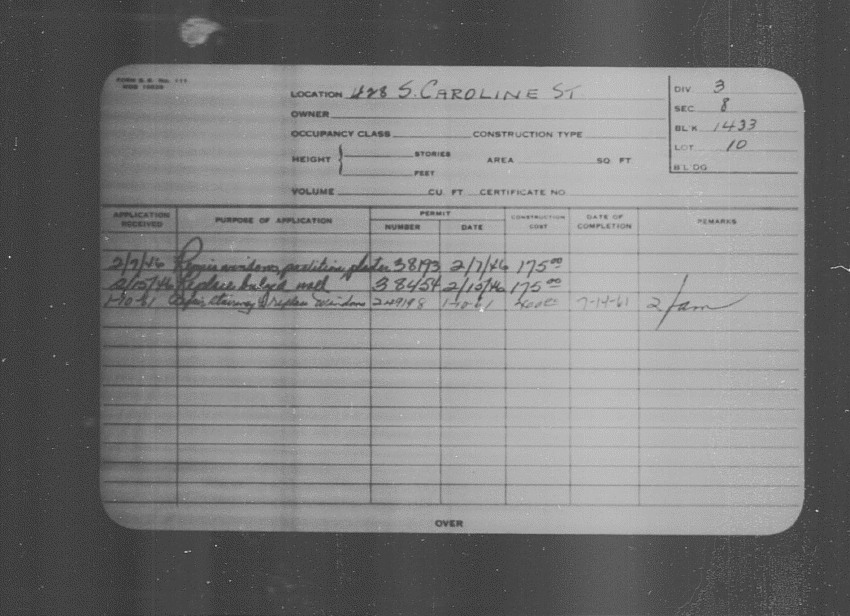 LOCATION 428 S. CAROLINE ST
OWNER
OCCUPANCY CLASS CONSTRUCTION TYPE
HEIGHT STORIES AREA SQ FT
FEET
VOLUME CU. FT. CERTIFICATE NO
DIV. 3
SEC 8
BL'K 1433
LOT 10
B'LDG
APPLICATION RECEIVED PURPOSE OF APPLICATION PERMIT NUMBER DATE CONSTRUCTION COST DATE OF COMPLETION REMARKS
2/7/46 Repair windows, partition, plaster 38193 2/7/46 175.00
2/15/46 Replace bulged wall 38454 2/15/46 175.00
1-10-61 Repair stairway & replace windows 249198 1-10-61 7-14-61
OVER